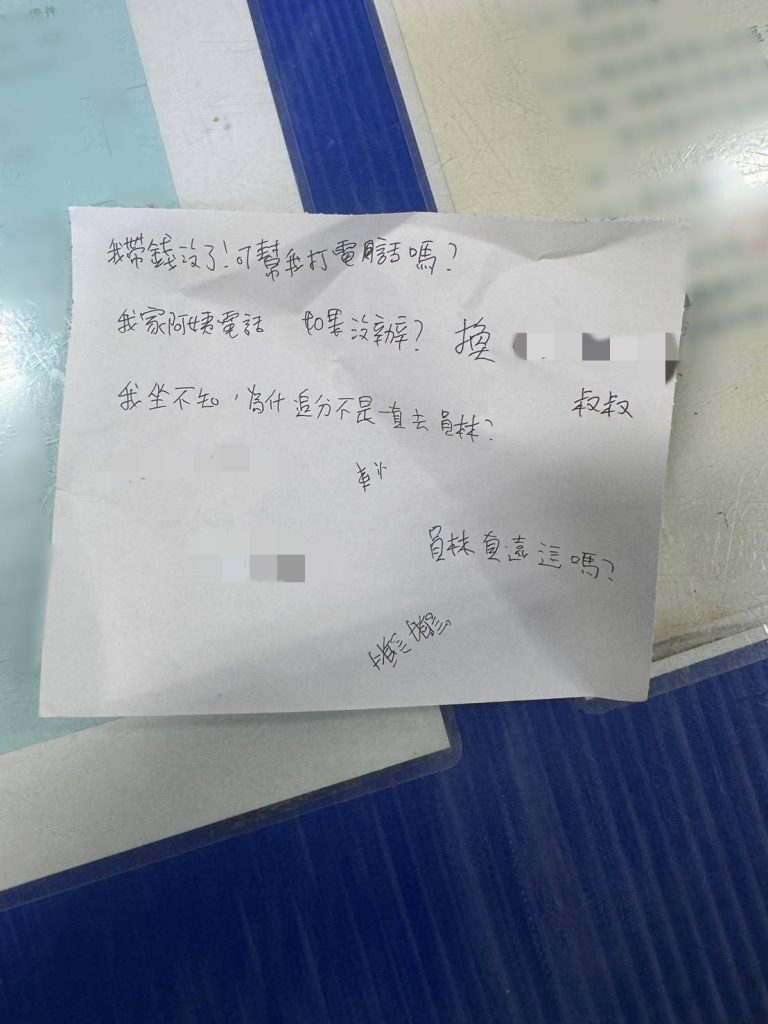 我帶錢沒了!可幫我打電話嗎?
我家阿姨電話 如果沒辦? 換
叔叔
我坐不知,為什追分不是一直去員林?
員林真遠這嗎?